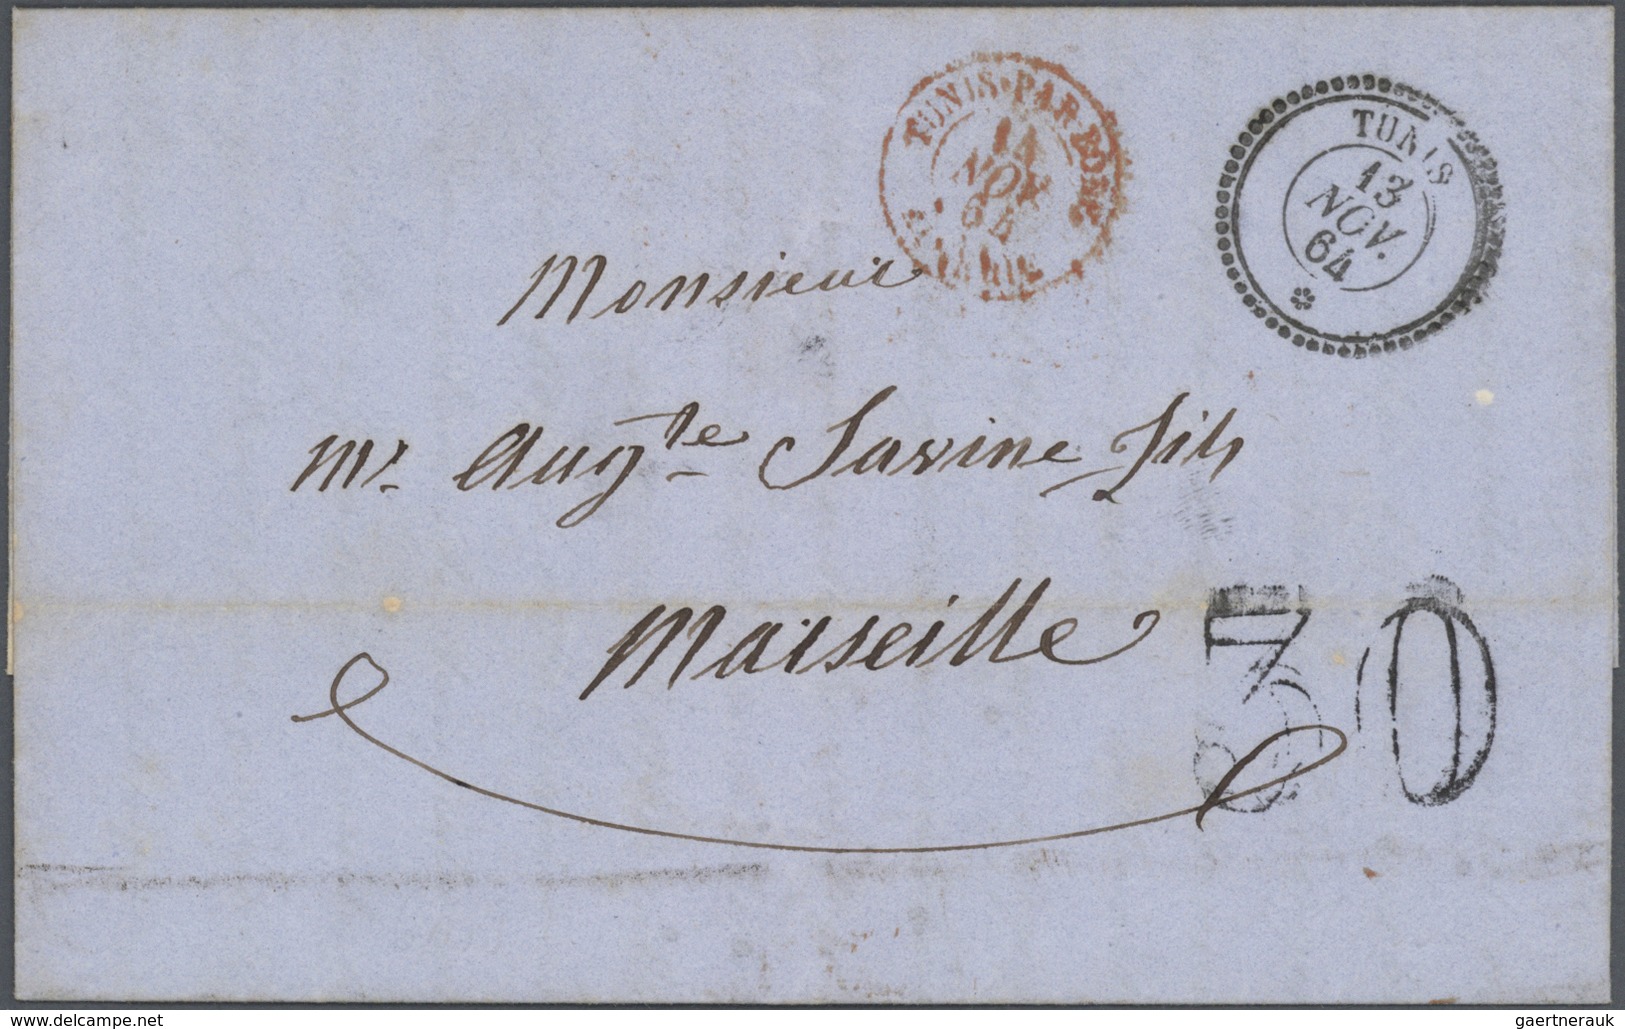 TUNIS·PAR·BÔNE
NOV
64
TUNIS
13
NOV.
64
Monsieur
Mr Augte Savine Fils
Marseille
30
www.delcampe.net
gaertnerauk